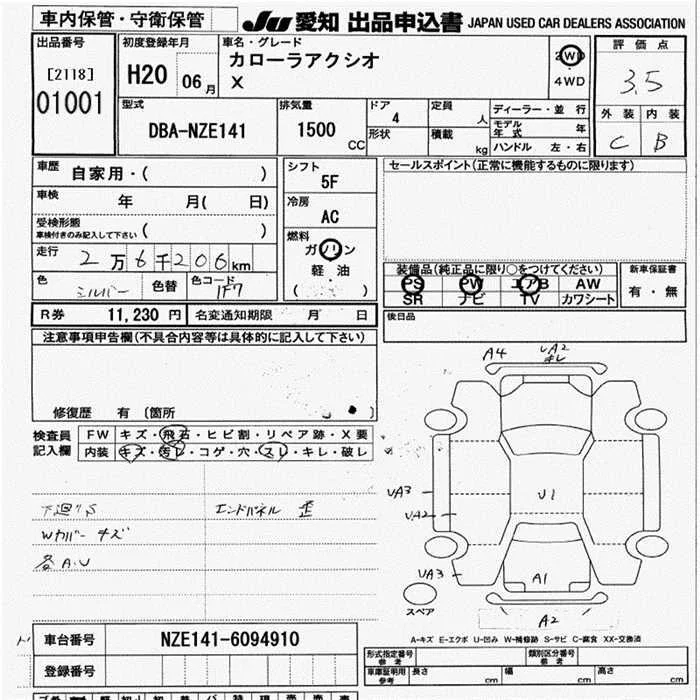 車内保管・守衛保管
JU 愛知 出品申込書 JAPAN USED CAR DEALERS ASSOCIATION
出品番号 初度登録年月 車名・グレード 評価点
[2118] H20 06月 カローラアクシオ 2WD 3.5
01001 X 4WD
型式 排気量 ドア 定員 ディーラー・並行 外装 内装
DBA-NZE141 1500 CC 4 人 モデル年式 年 C B
形状 積載 kg ハンドル 左・右
車歴 自家用・( ) シフト セールスポイント(正常に機能するものに限ります)
5F
車検 年 月( 日) 冷房
AC
受検形態 ( )
車検付きのみ記入して下さい
燃料
走行 2万6千206km ガソリン
軽油
( )
装備品(純正品に限り○をつけてください) 新車保証書
色 シルバー 色替 色コード 1F7 PS PW エアB AW 有・無
SR ナビ TV カワシート
R券 11,230円 名変通知期限 月 日 後日品
注意事項申告欄(不具合内容等は具体的に記入して下さい)
修復歴 有 〔箇所
検査員 FW キズ・飛石・ヒビ割・リペア跡・X要
記入欄 内装 キズ・汚レ・コゲ・穴・スレ・キレ・破レ
下廻リS エンドパネル 歪
Wカバー キズ
各A.U
A4 UA2 キレ
UA3 U1
UA2
UA3 A1
スペア A2
A-キズ E-エクボ U-凹み W-補修跡 S-サビ C-腐食 XX-交換済
車台番号 NZE141-6094910
登録番号
形式指定番号 参考 類別区分番号 参考
車庫証明用 参考 長さ cm 幅 cm 高さ cm